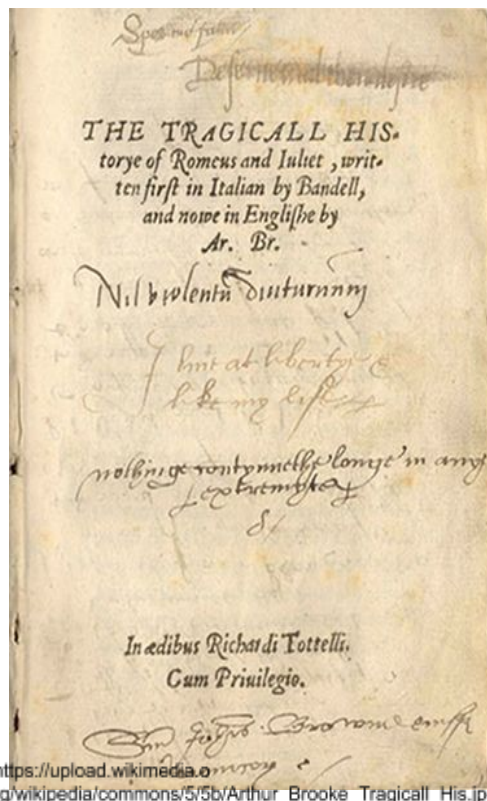 Spes me
THE TRAGICALL HIS-
torye of Romeus and Iuliet, writ-
ten first in Italian by Bandell,
and nowe in Englishe by
Ar. Br.
Nil violentū diuturnum
I at libertye
like my life
nothinge contynnethe longe in any
extremyte
In ædibus Richardi Tottelli.
Cum Priuilegio.
https://upload.wikimedia.o
g/wikipedia/commons/5/5b/Arthur_Brooke_Tragicall_His.jp